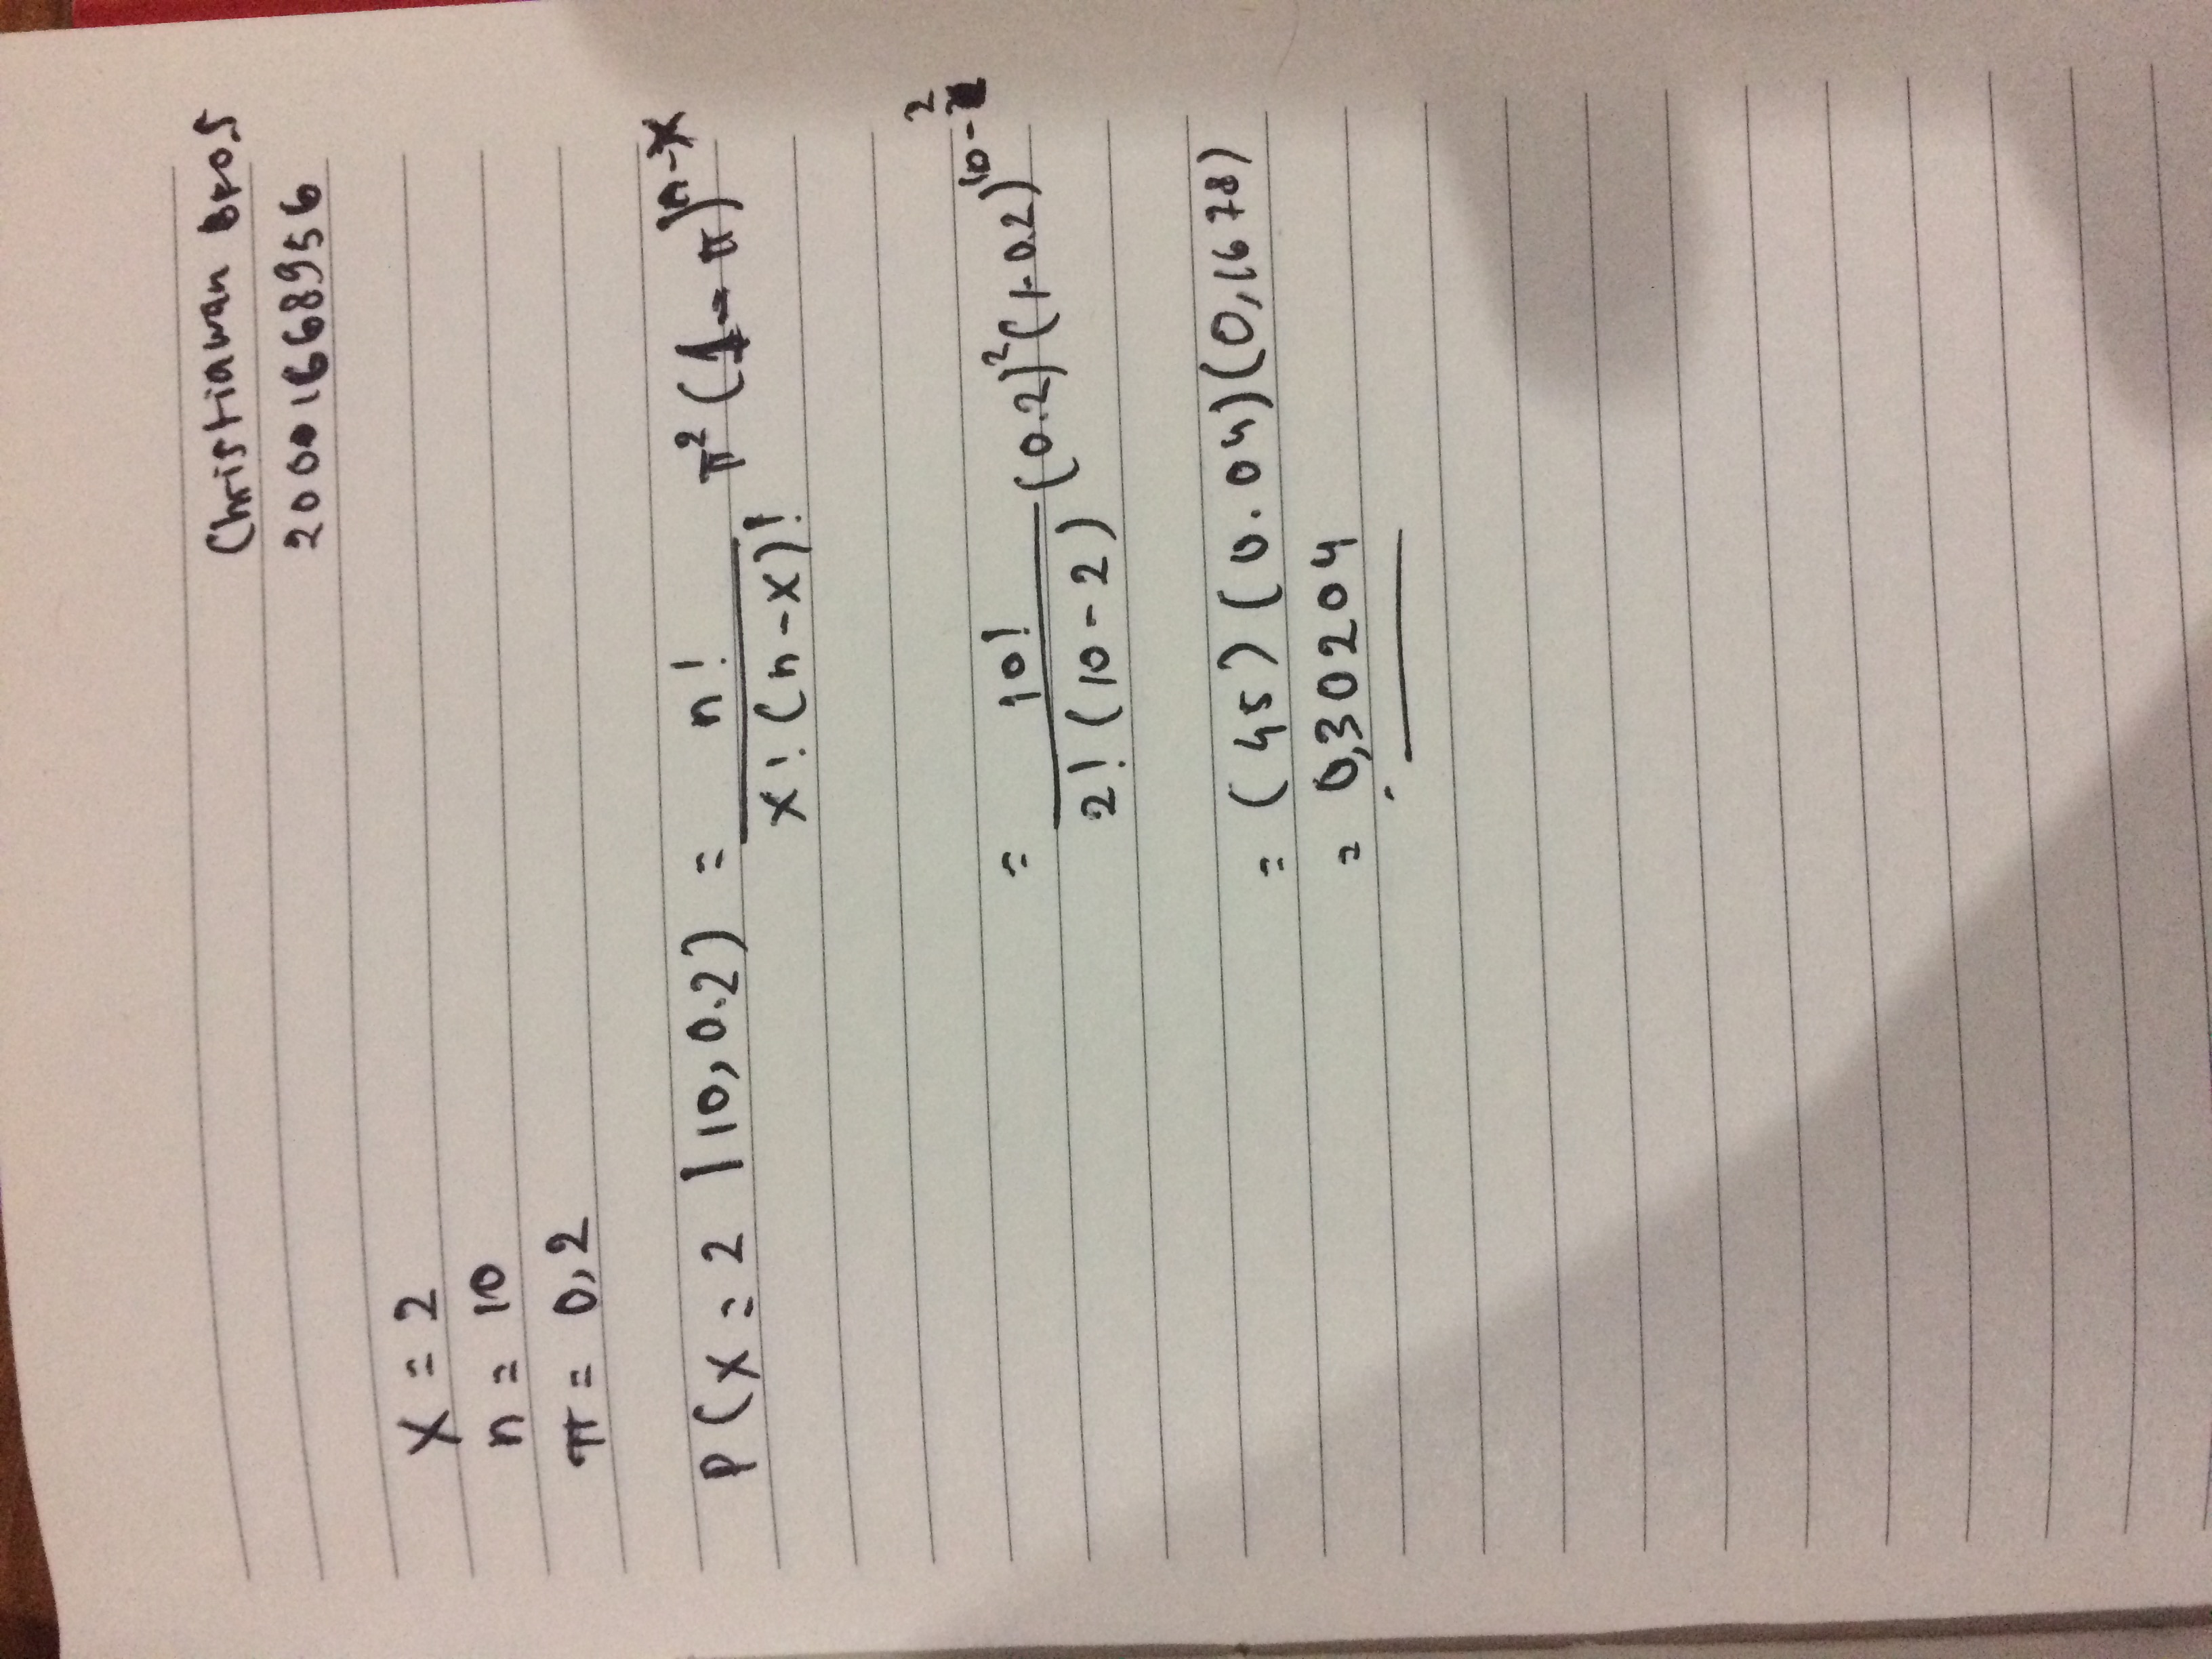 Christiawan Bros
20001668956
X = 2
n = 10
π = 0,2
P(X = 2 | 10, 0.2) = n! / x! (n-x)! π² (1 - π)^n-x
= 10! / 2! (10-2) (0.2)² (1-0.2)^10-2
= (45) (0.04) (0,1678)
= 0,30204